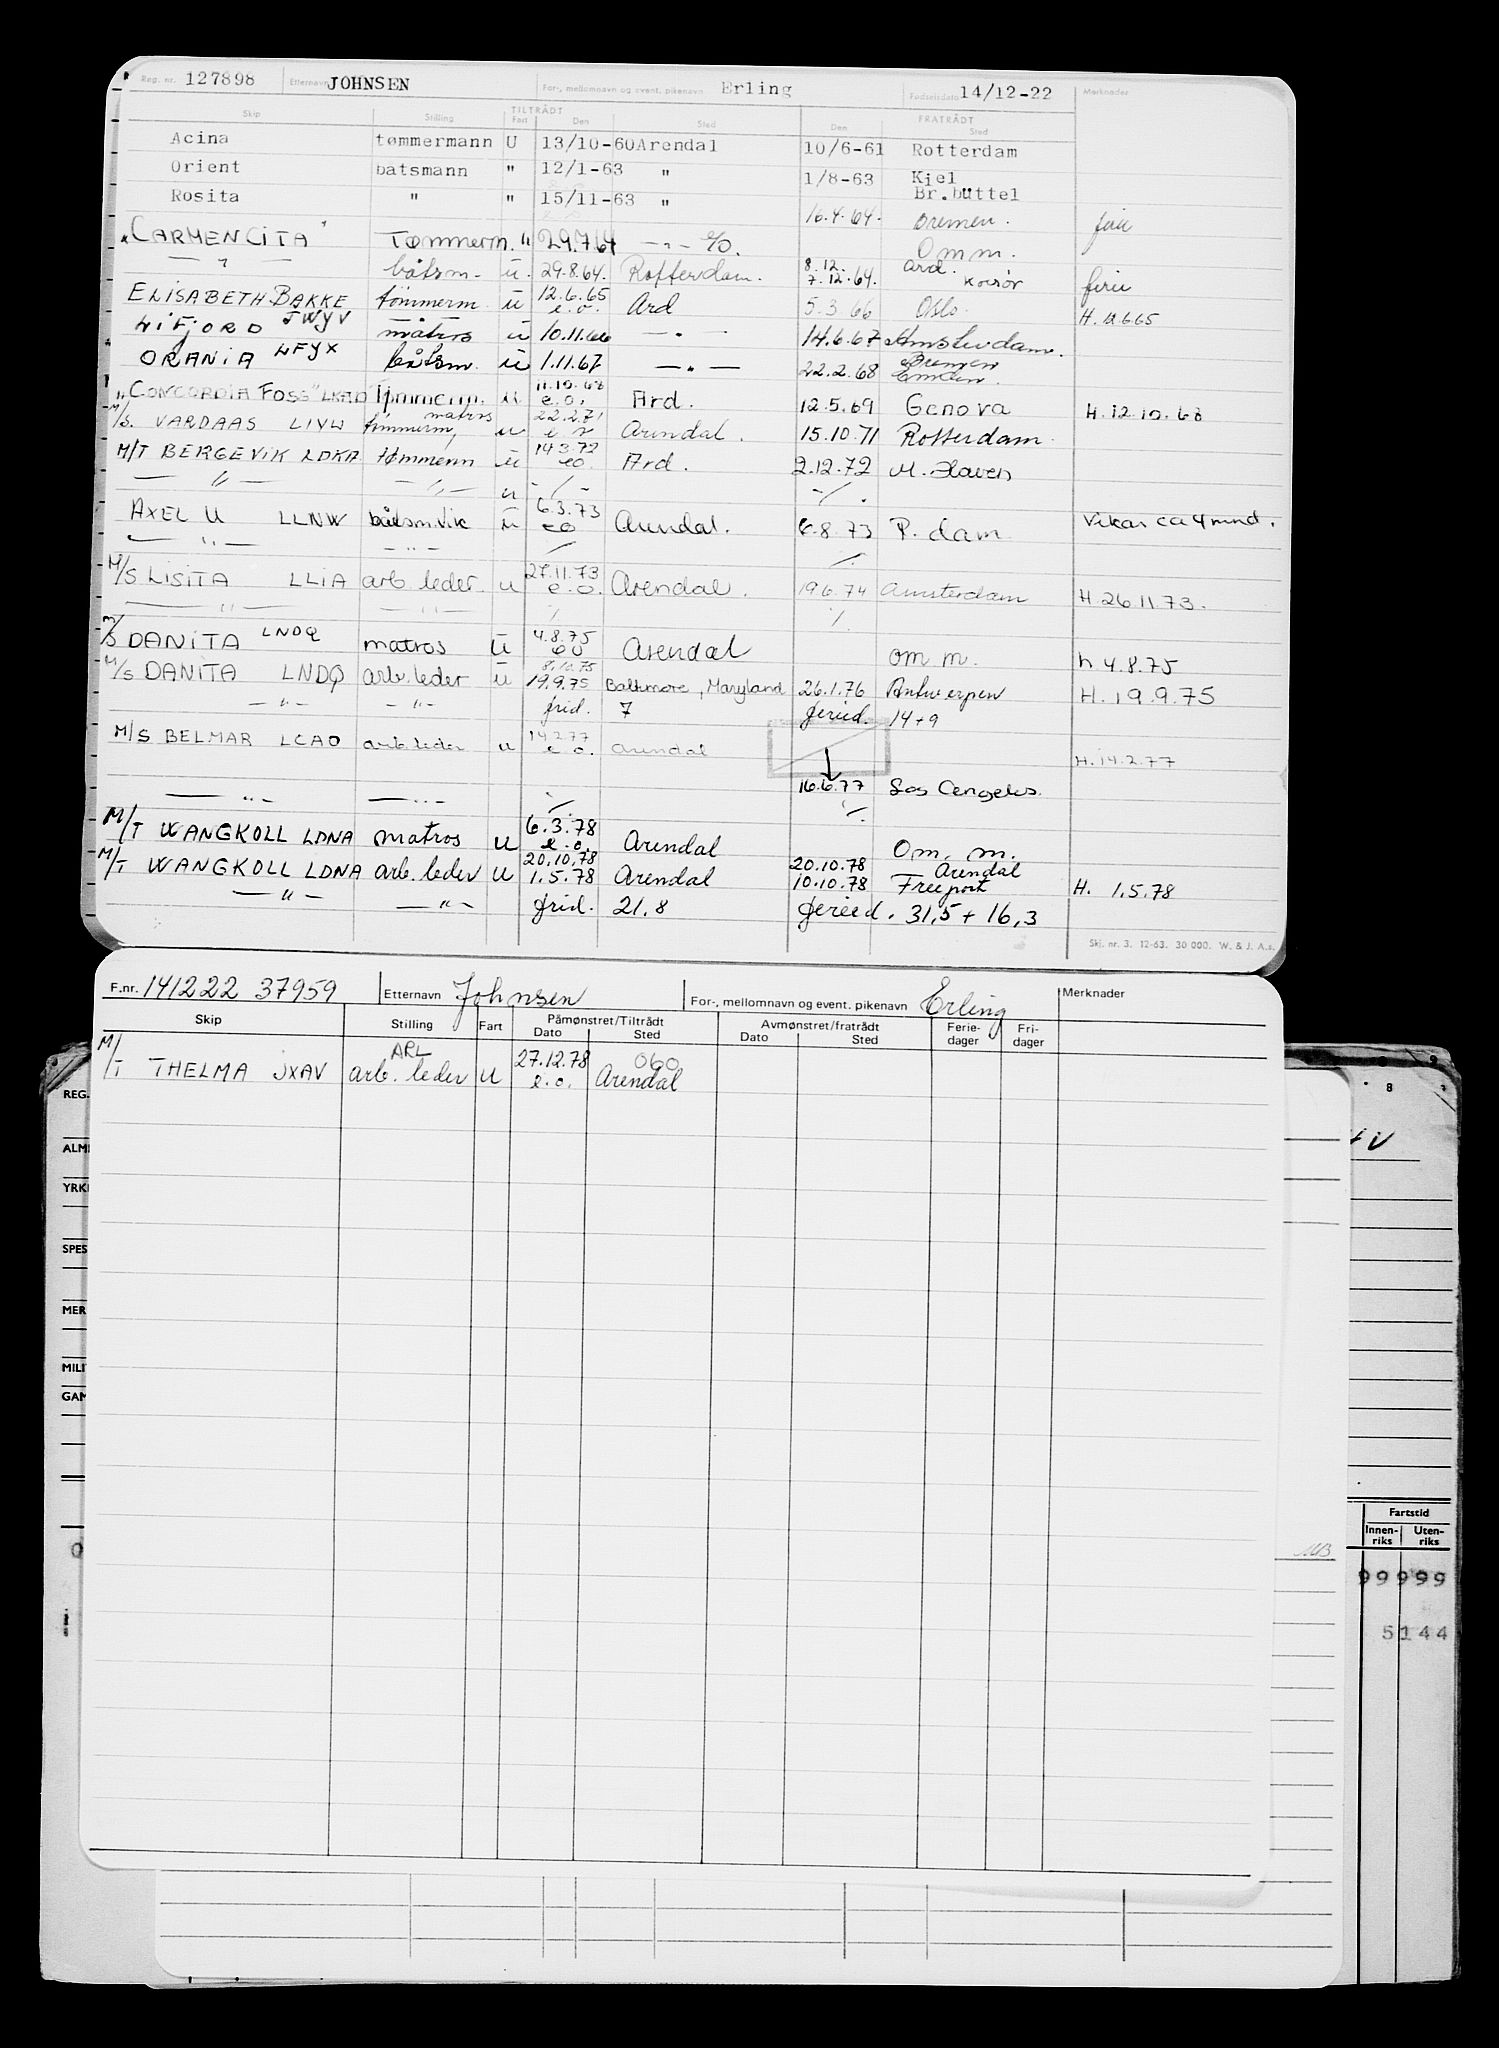 Reg. nr. 127898 Etternavn JOHNSEN For-, mellomnavn og event. pikenavn Erling Fødselsdato 14/12-22 Merknader
TILTRÅDT FRATRÅDT
Skip Stilling Fart Den Sted Den Sted
Acina tømmermann U 13/10-60 Arendal 10/6-61 Rotterdam
Orient båtsmann " 12/1-63 " 1/8-63 Kiel
Rosita " " 15/11-63 " Br.büttel
16.4.64. Bremen. ferie
"CARMENCITA" Tømmerm. " 29.7.64 —"— e/o. Omm.
— " — båtsm. u. 29.8.64. Rotterdam. 8.12. Ard.
7.12.64. Korsør ferie
ELISABETH BAKKE JWYV tømmerm. u 12.6.65 e.o. Ard 5.3.66 Oslo. H. 12.6.65
LIFJORD LFYX matros u 10.11.66 —"— 14.6.67 Amsterdam.
ORANIA båtsm. u 1.11.67 —"— 22.2.68 Bremen
Emden.
"CONCORDIA FOSS" LKAD Tømmerm. u 11.10.68 e.o. Ard. 12.5.69 Genova H. 12.10.68
M/S. VARDAAS LIVW matros tømmerm, u 22.2.71 Arendal. 15.10.71 Rotterdam.
M/T BERGEVIK LDKA tømmerm u 14.3.72 eo. Ard. 2.12.72 M. Haven
— " — — " — u -/- -/.
AXEL U LLNW båtsm.vik u 6.3.73 eo Arendal. 6.8.73 R.dam Vikar ca 4 mnd.
— " — — " — / /.
M/S LISITA LLIA arb. leder. u 27.11.73 e.o. Arendal. 19.6.74 Amsterdam H. 26.11.73.
— " — — " — / /.
M/S DANITA LNDQ matros u 4.8.75 eo Arendal om m. h 4.8.75
8.10.75
M/S DANITA LNDQ arb. leder u 19.9.75 Baltimore, Maryland 26.1.76 Antwerpen H. 19.9.75
— " — — " — frid. 7 feried. 14+9
M/S BELMAR LCAO arb. leder u 14.2.77 e.o. Arendal H. 14.2.77
16.6.77 Los Angeles.
— " — — " — / /.
M/T WANGKOLL LDNA matros u 6.3.78 e.o. Arendal Om. m.
20.10.78 20.10.78 Arendal
M/T WANGKOLL LDNA arb. leder u 1.5.78 Arendal 10.10.78 Freeport H. 1.5.78
— " — — " — frid. 21.8 feried. 31,5 + 16,3
Skj. nr. 3. 12-63. 30 000. W. & J. A.s.
F.nr. 141222 37959 Etternavn Johnsen For-, mellomnavn og event. pikenavn Erling Merknader
Skip Stilling Fart Påmønstret/Tiltrådt Avmønstret/fratrådt Ferie- dager Fri- dager
Dato Sted Dato Sted
ARL
M/T THELMA JXAV arb. leder u 27.12.78 e.o. 060 Arendal
REG.
8 7
ALM
YRK
SPES
MER
MILI
GAM
Fartstid
Innen- riks Uten- riks
MB
99 999
5144